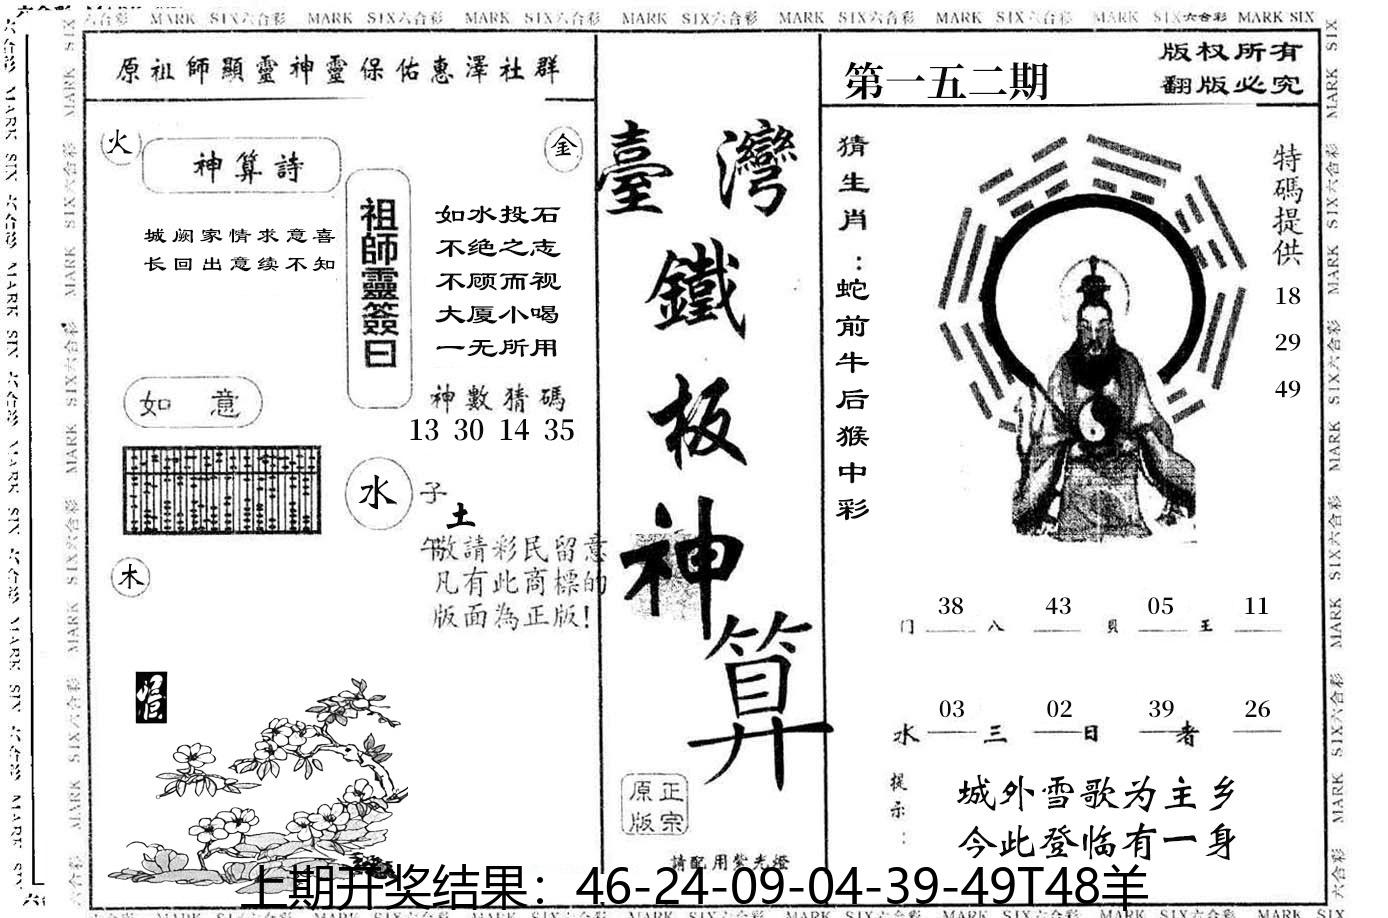 MARK SIX六合彩 MARK SIX六合彩 MARK SIX六合彩 MARK SIX六合彩 MARK SIX六合彩 MARK SIX六合彩 MARK SIX六合彩 MARK SIX
原祖師顯靈神靈保佑惠澤社群
火
神算詩
金
城阙家情求意喜
长回出意续不知
祖師靈簽曰
如水投石
不绝之志
不顾而视
大厦小喝
一无所用
如意
神數猜碼
13 30 14 35
水
子
土
午
木
敬請彩民留意
凡有此商標的
版面為正版!
臺灣
鐵
板
神
算
原正
版宗
請配用紫光燈
第一五二期
版权所有
翻版必究
猜生肖：蛇前牛后猴中彩
特碼提供
18
29
49
38 43 05 11
门 八 貝 王
03 02 39 26
水 三 日 者
提示：
城外雪歌为主乡
今此登临有一身
上期开奖结果：46-24-09-04-39-49T48羊